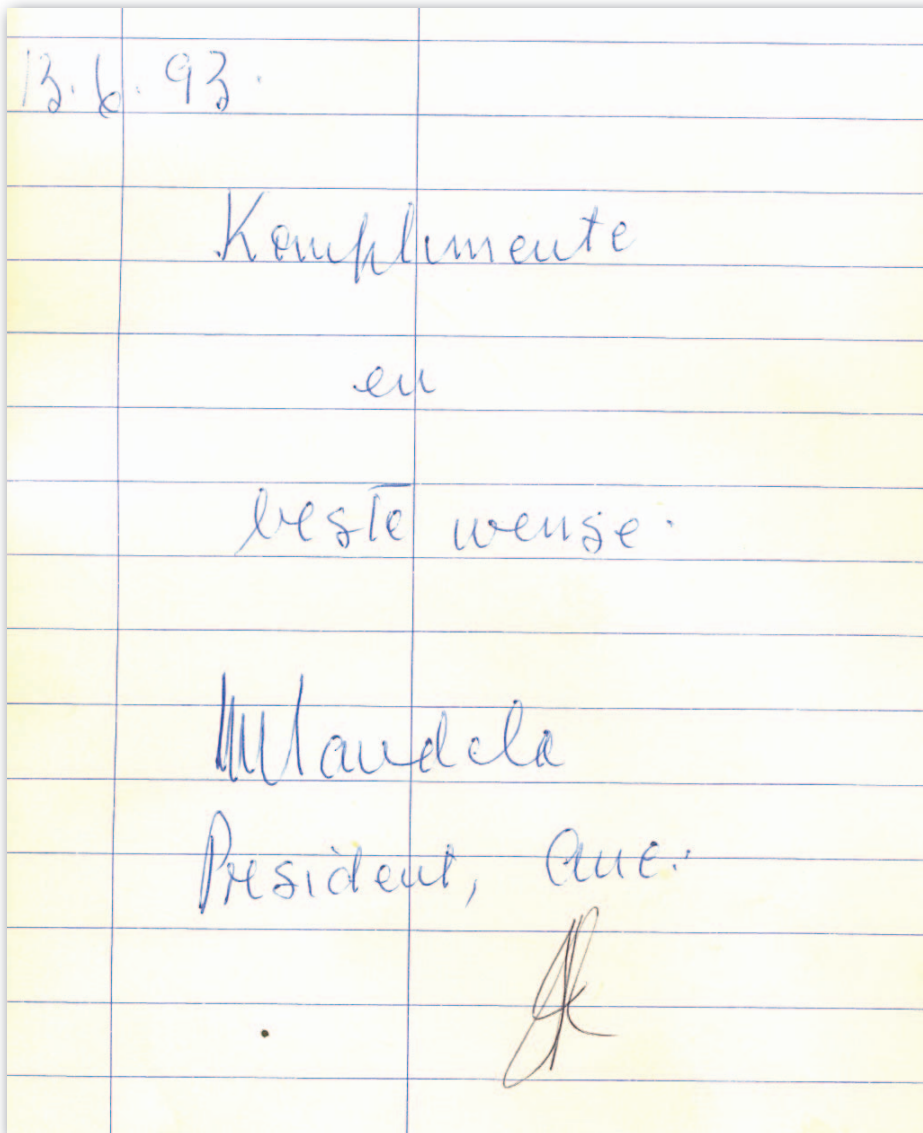 13.6.93.
Komplimente
en
beste wense.
NMandela
President, anc.